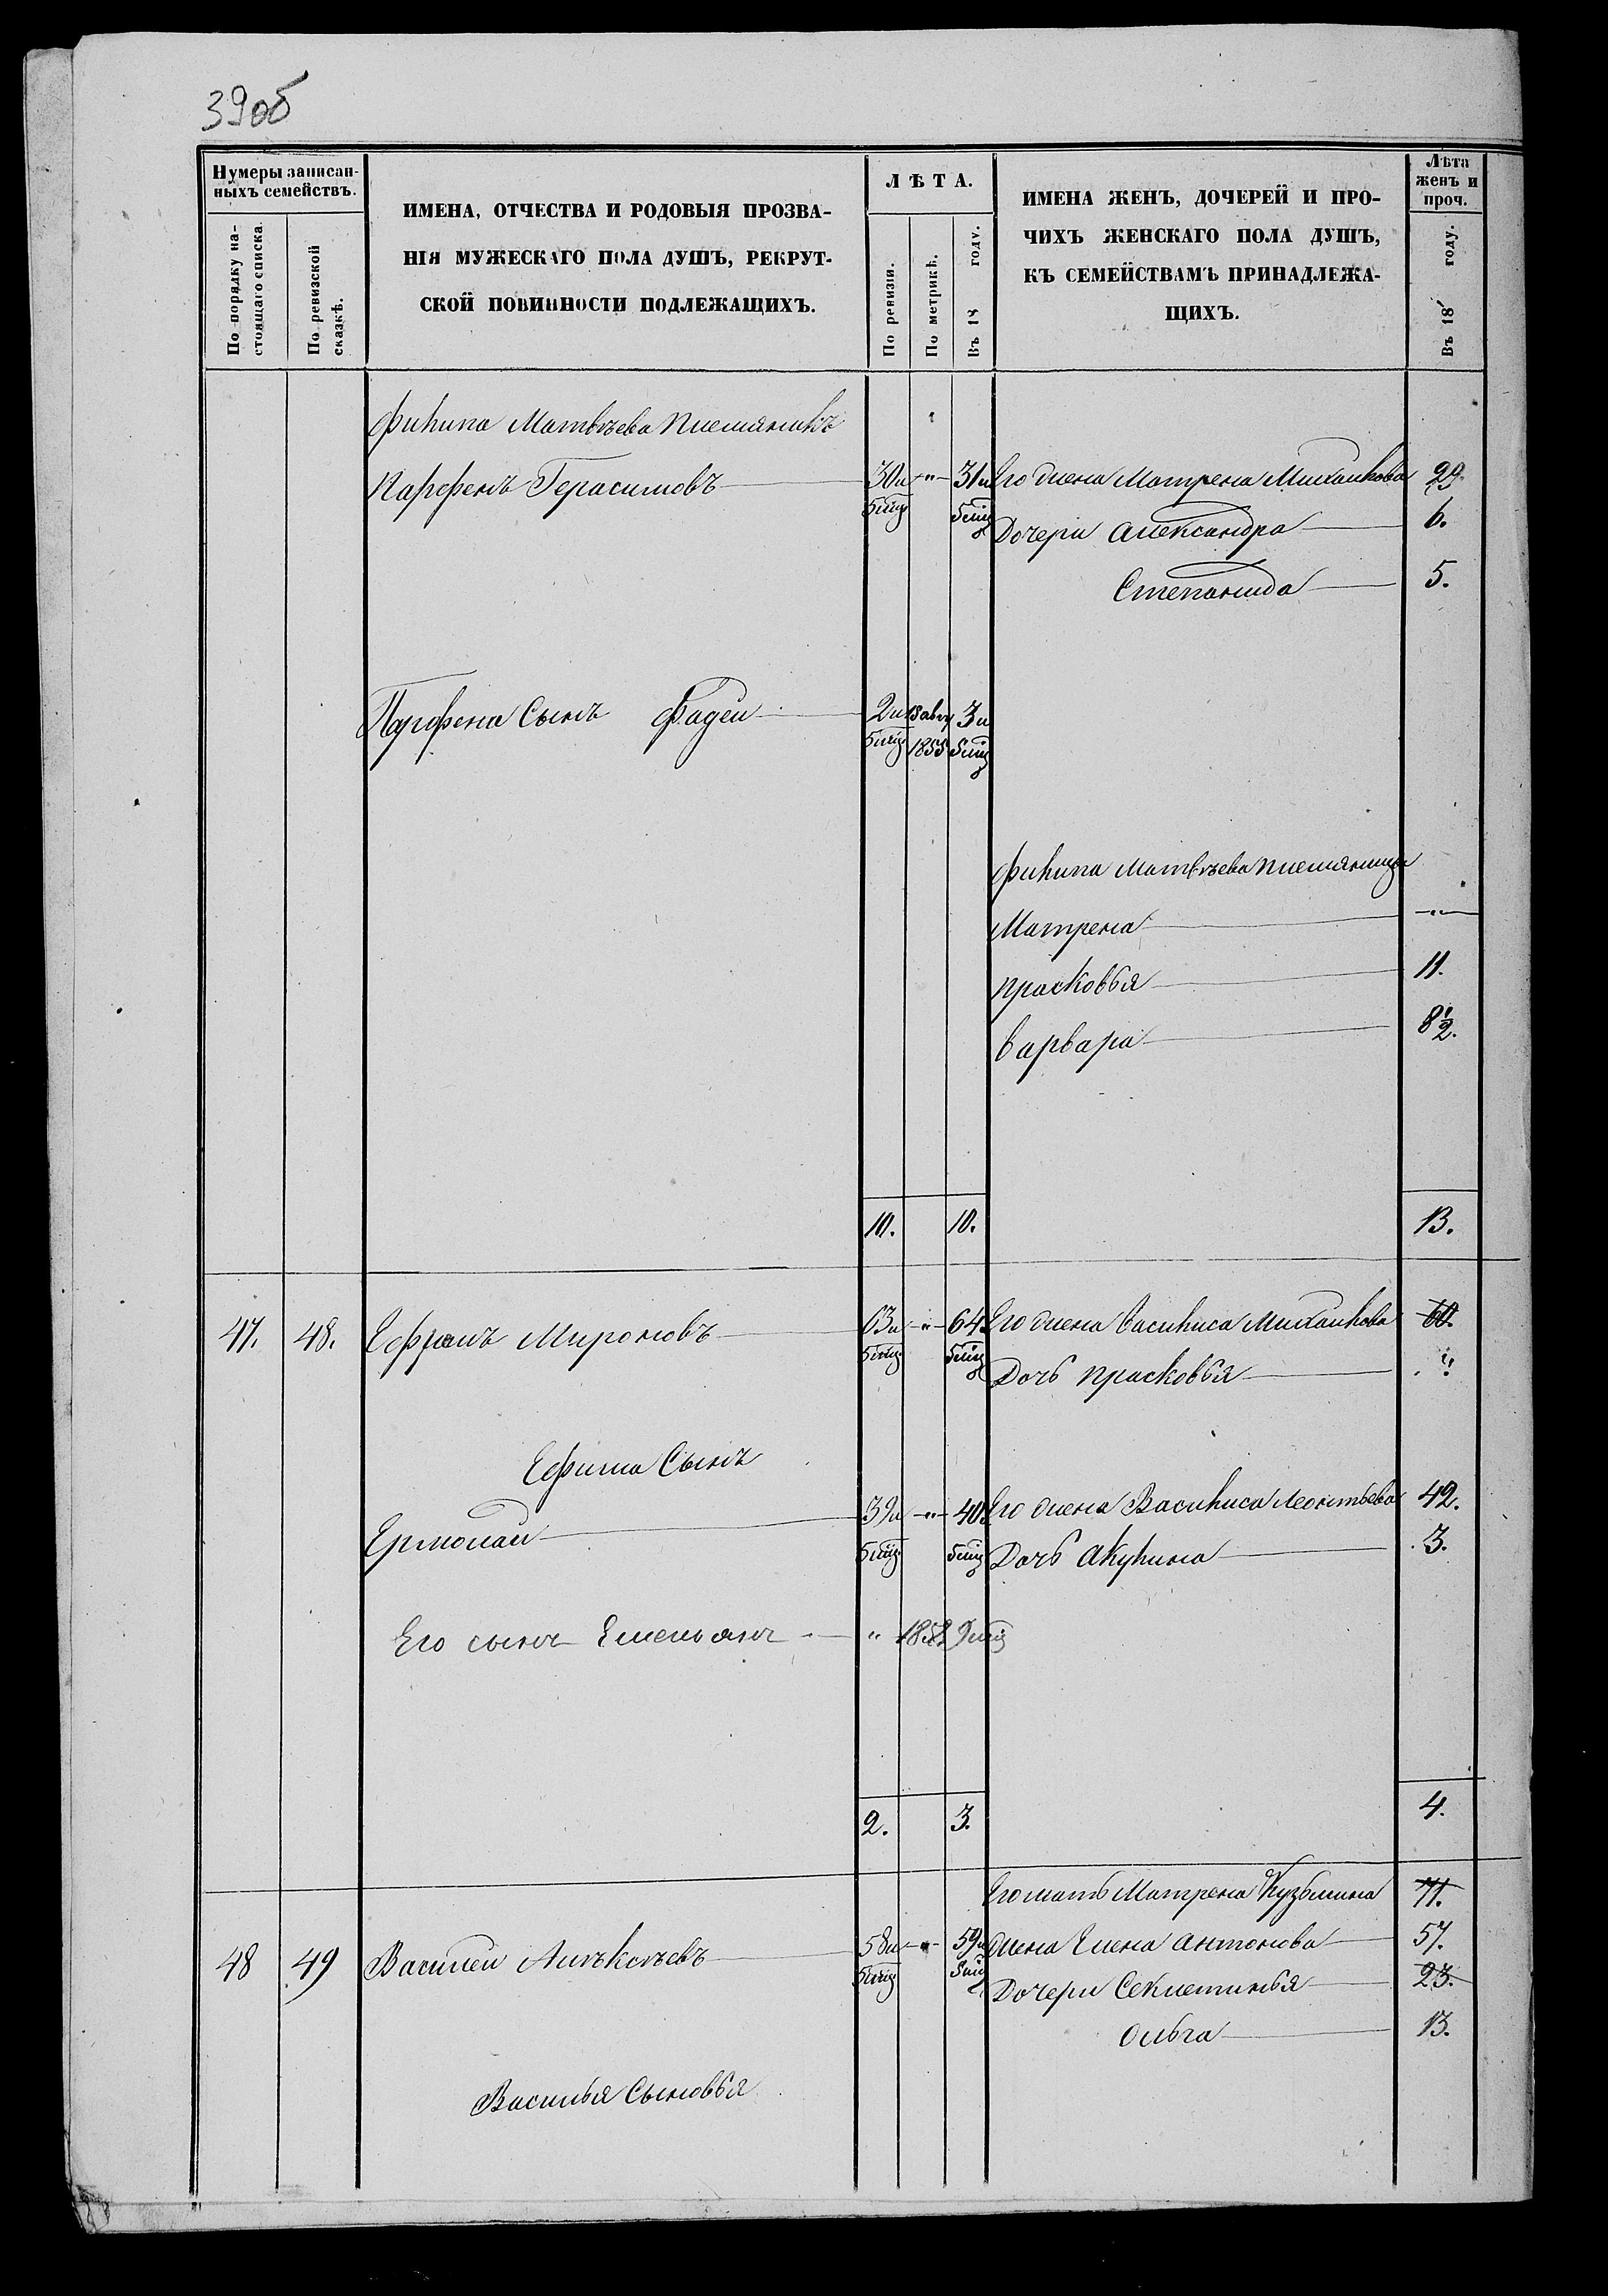 39об
Нумеры записан-
ныхъ семействъ.
По порядку на-
стоящаго списка.
По ревизской
сказкѣ.
ИМЕНА, ОТЧЕСТВА И РОДОВЫЯ ПРОЗВА-
НІЯ МУЖЕСКАГО ПОЛА ДУШЪ, РЕКРУТ-
СКОЙ ПОВИННОСТИ ПОДЛЕЖАЩИХЪ.
ЛѢТА.
По ревизіи.
По метрикѣ.
Въ 18 году.
ИМЕНА ЖЕНЪ, ДОЧЕРЕЙ И ПРО-
ЧИХЪ ЖЕНСКАГО ПОЛА ДУШЪ,
КЪ СЕМЕЙСТВАМЪ ПРИНАДЛЕЖА-
ЩИХЪ.
Лѣта
женъ и
проч.
Въ 18 году.
Филипа Матвѣева племяникъ
Парфенъ Герасимовъ 30 и " 31 и Его жена Матрена Михайлова 29.
5 мц 5 мц Дочери Александра 6.
Степанида 5.
Парфена Сынъ Фадей 2 и 18 авг 3 и
5 мц 1855 5 мц
Филипа Матвѣева племяницы
Матрена "
Прасковья 11.
Варвара 8 1/2.
10. 10. 13.
47. 48. Ефимъ Мироновъ 63 и " 64 Его жена Василиса Михайлова 60.
5 мц 5 мц Дочь Прасковья "
Ефима Сынъ
Ермолай 39 и " 40 Его жена Василиса Леонтьева 42.
5 мц 5 мц Дочь Акулина 3.
Его сынъ Емельянъ " 1858 9 мц
2. 3. 4.
Его мать Матрена Кузьмина 71.
48 49 Василей Алѣксѣевъ 58 и " 59 и Жена Елена Антонова 57.
5 мц 5 мц Дочери Секлетинья 23.
Ольга 13.
Василья Сыновья